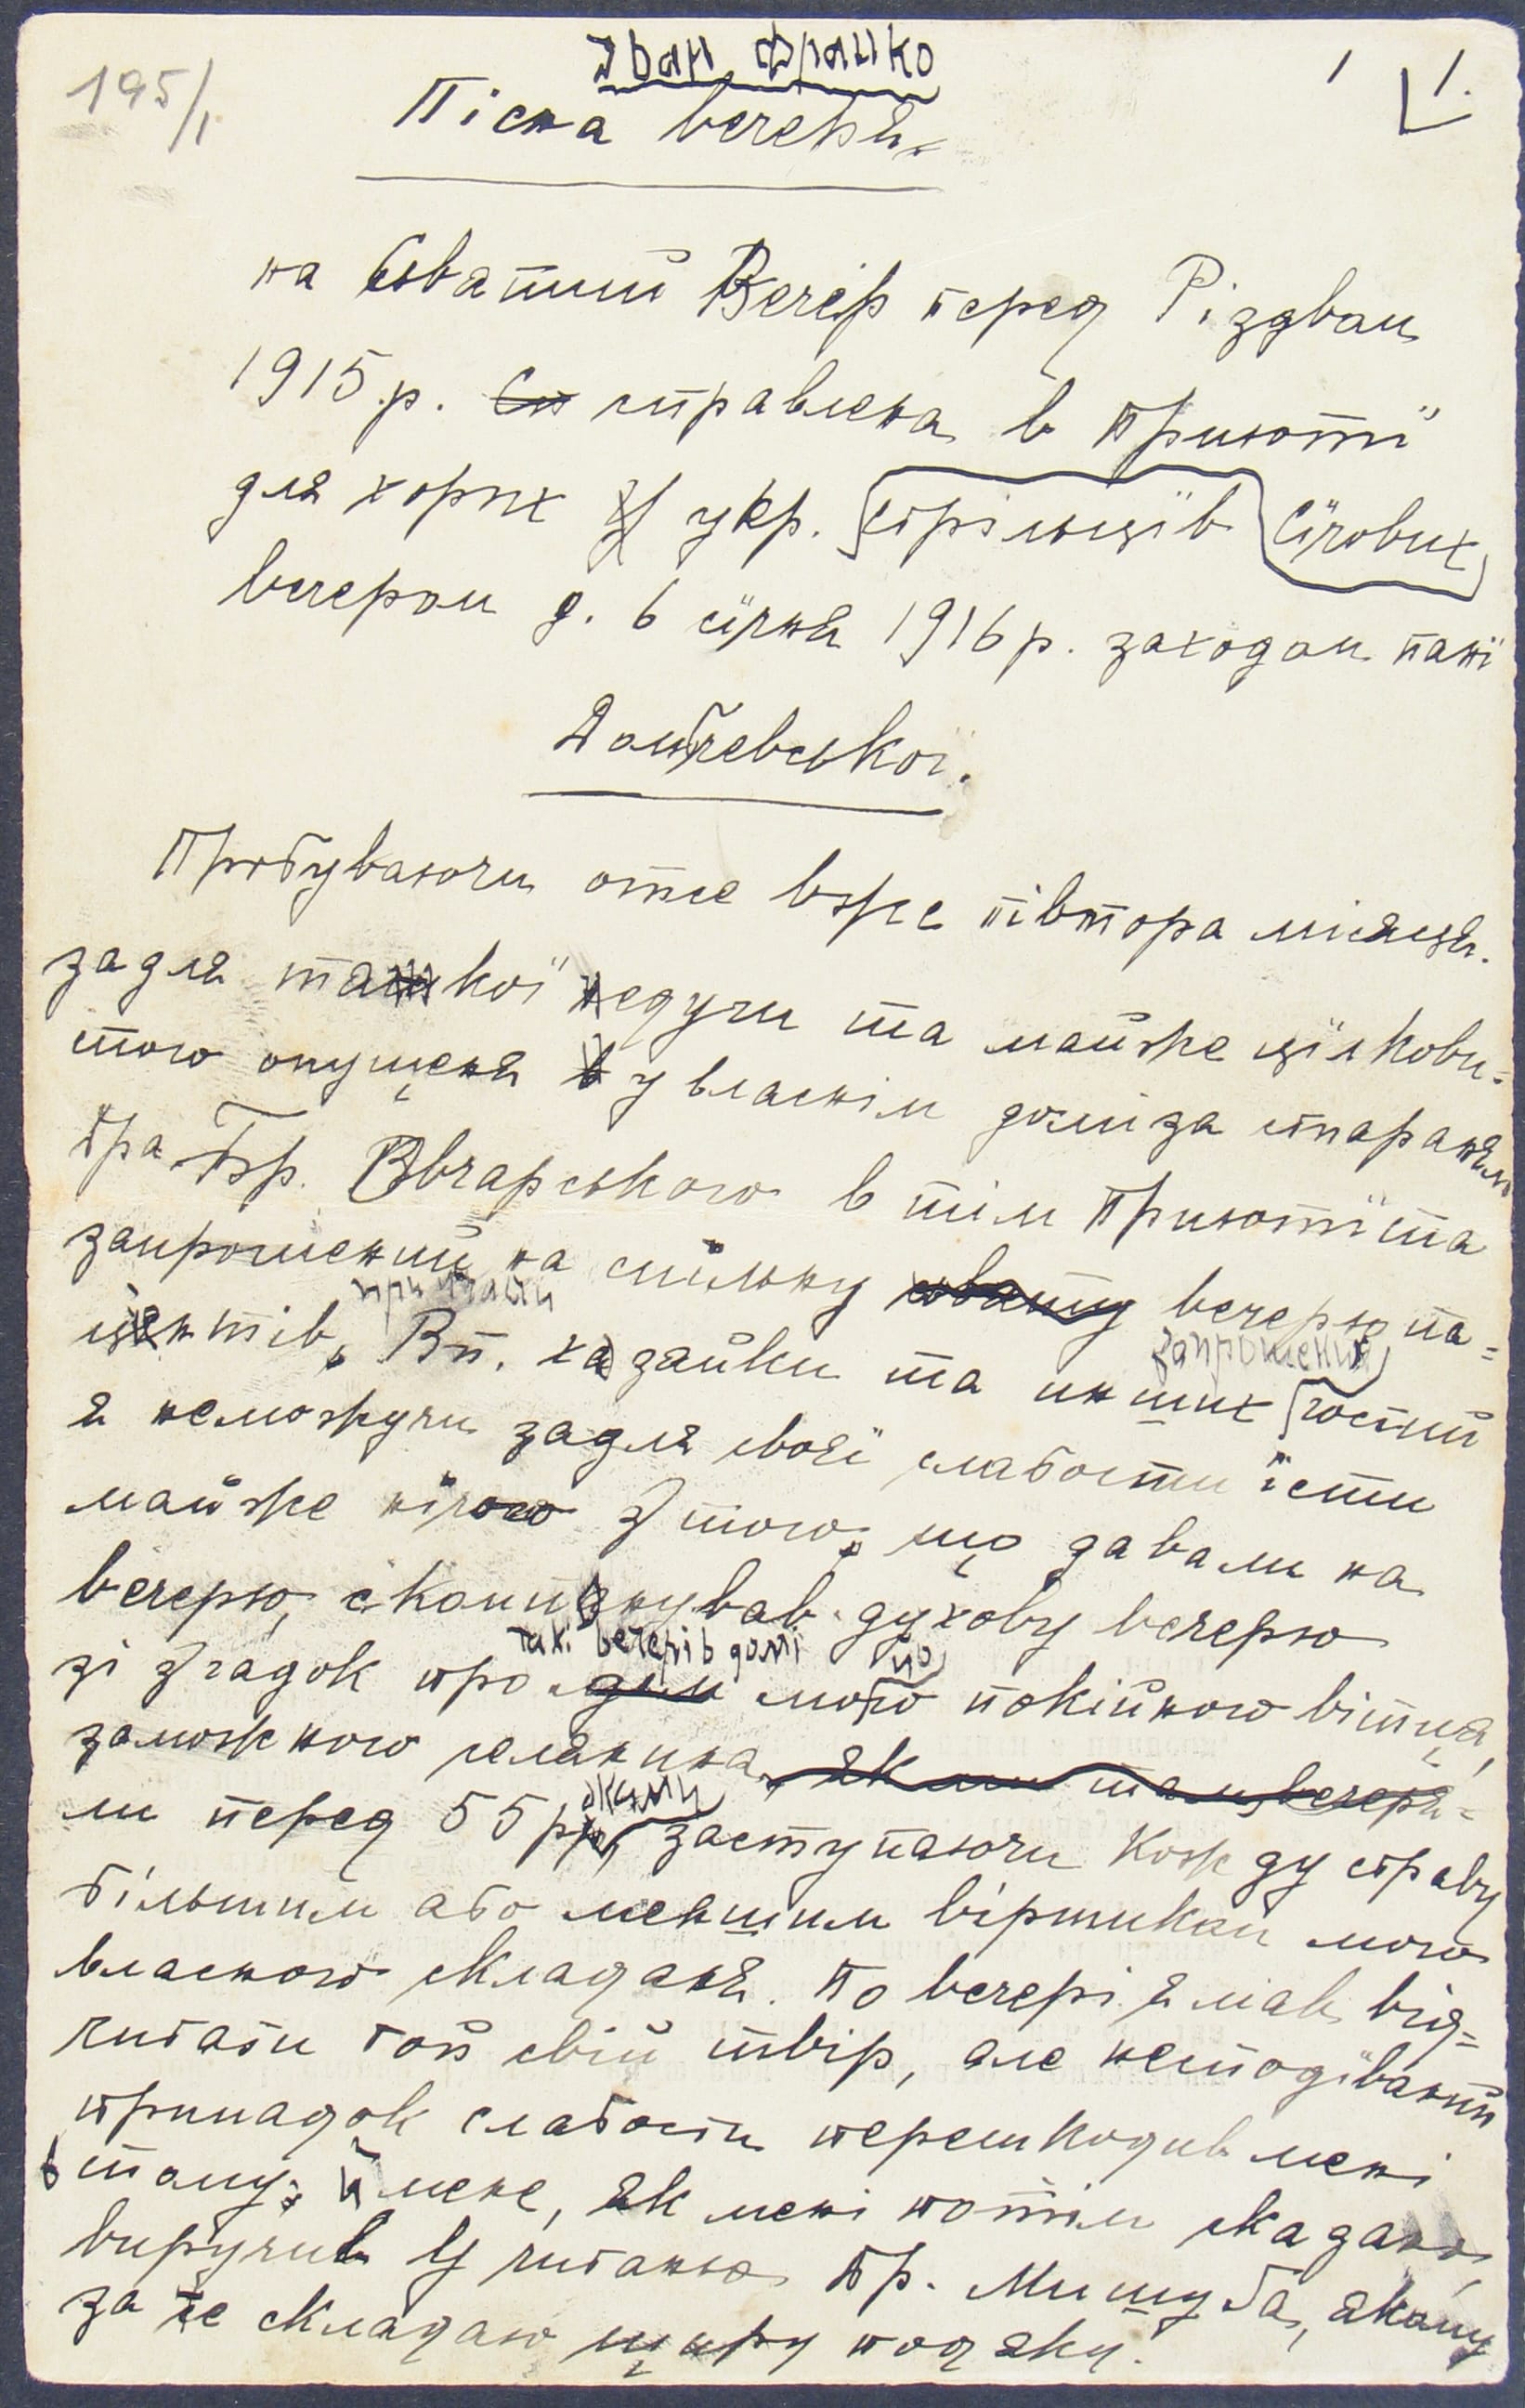 195/1
Іван Франко
1 1.
Пісна вечеря
на Сьвятий Вечір перед Різдвом
1915 р. Сп справлена в Приюті
для хорих з укр. стрільців Січових
вечером д. 6 січня 1916 р. заходом пані
Домбчевської.
Пробуваючи отсе вже півтора місяця
задля тяжкої недуги та майже цілкови-
того опущеня в у власнім домі за старанєм
бра Бр. Овчарського в тім Приюті та
запрошений на спільну сьвяту вечерю па-
при їзді
ціентів, Вп. хазяйки та инших гостий
запрошених
я не можучи задля своєї слабости їсти
майже нічого з того, що давали на
вечерю, скомпонував духову вечерю
такі вечері в домі
зі згадок про дім мого покійного вітця,
заможного селянина, як ми там вечеря-
якими
ли перед 55 рр, заступаючи кожду страву
більшим або меншим віршиком мого
власного складаня. По вечері я мав від-
читати той свій твір, але несподіваний
припадок слабости перешкодив мені
в тому; й мене, як мені потім сказано,
виручив у читаню бр. Мишуба, якому
за те складаю щиру подяку.